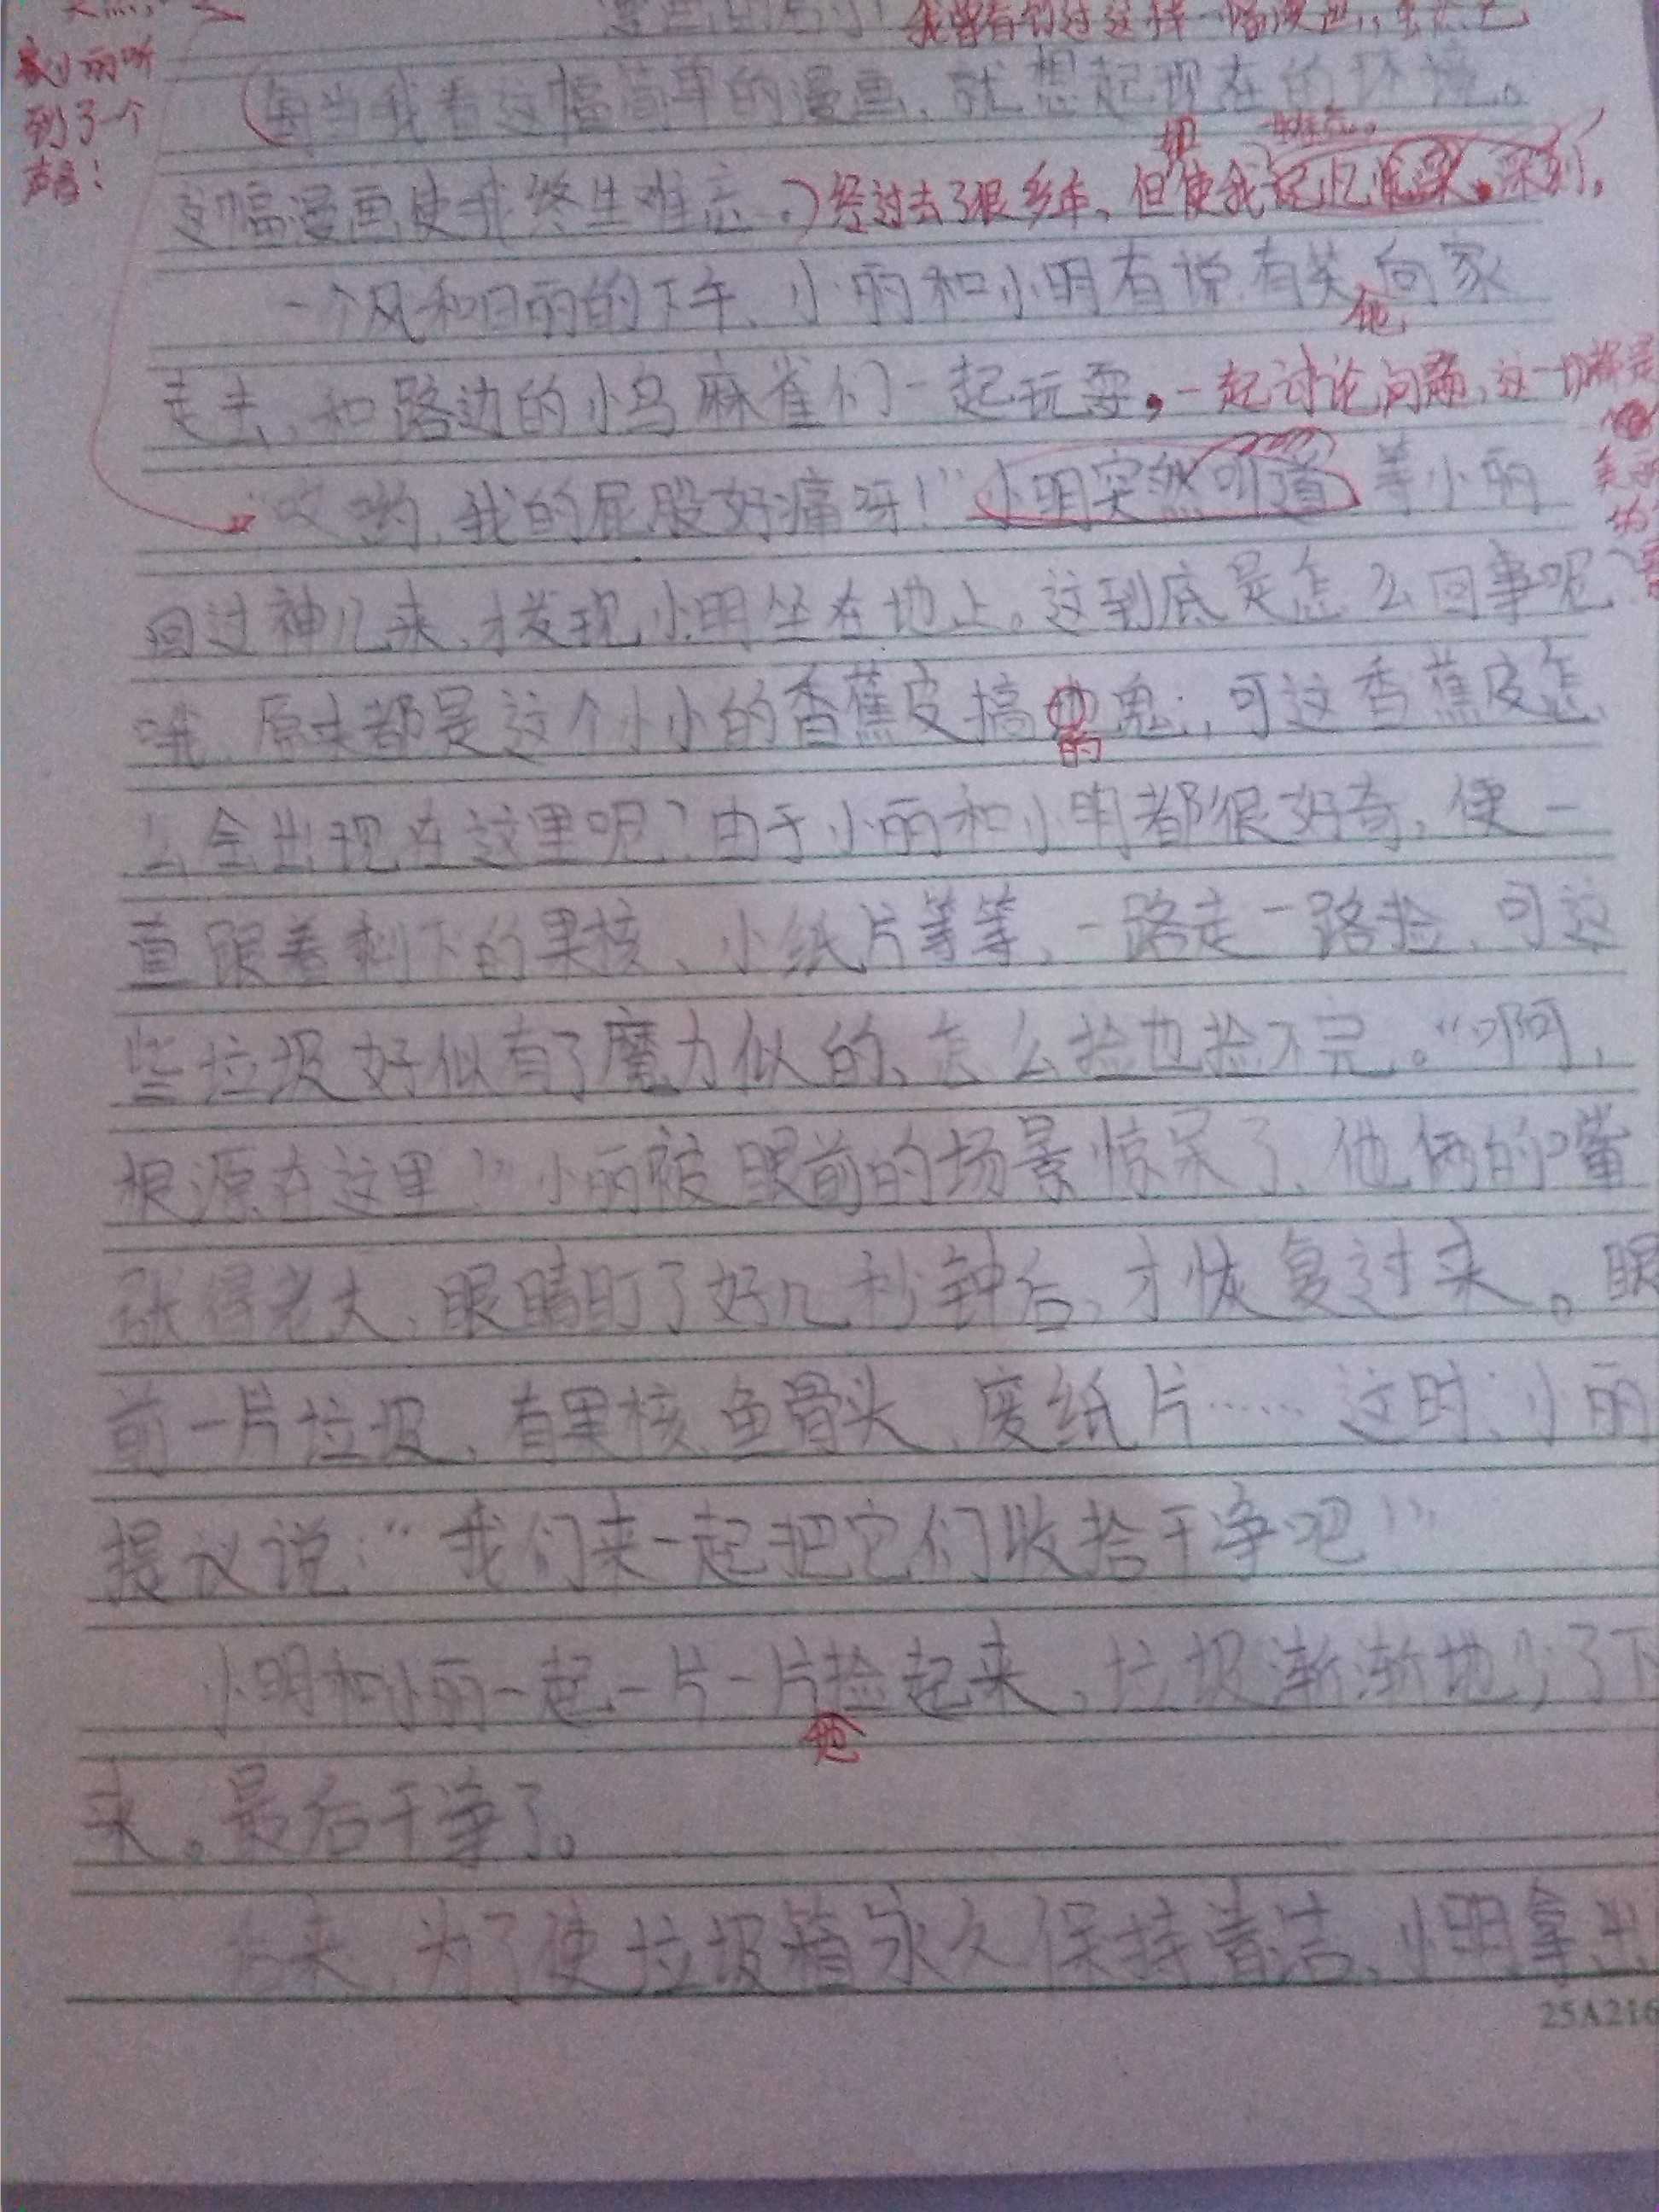 我曾看到过这样一幅漫画，虽然已
家小丽听
到了个
声音！
每当我看这幅简单的漫画，就想起现在的环境。
这幅漫画使我终生难忘。经过去了很多年，但使我记忆深刻。
一个风和日丽的下午，小丽和小明有说有笑向家
地
走去，和路边的小鸟麻雀们一起玩耍，一起讨论问题，这一切都是
"哎哟，我的屁股好痛呀！"小明突然叫道 等小丽
回过神儿来，才发现小明坐在地上。这到底是怎么回事呢？
哦，原来都是这个小小的香蕉皮搞 鬼，可这香蕉皮怎
的
么会出现在这里呢？由于小丽和小明都很好奇，便一
直跟着剩下的果核、小纸片等等，一路走一路捡，可这
些垃圾好似有了魔力似的，怎么捡也捡不完。"啊，
根源在这里！"小丽被眼前的场景惊呆了，他俩的嘴
张得老大，眼睛盯了好几秒钟后，才恢复过来。眼
前一片垃圾，有果核、鱼骨头、废纸片……这时，小丽
提议说："我们来一起把它们收拾干净吧！"
小明和小丽一起一片一片捡起来，垃圾渐渐地少了下
地
来。最后干净了。
后来，为了使垃圾箱永久保持清洁，小明拿出
25A216